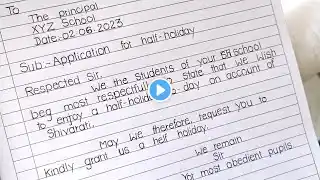 To
The principal
XYZ School
Date:-02.06.2023
Sub:-Application for half-holiday
Respected Sir,
We the students of your school
beg most respectfully state that we wish
to enjoy a half-holiday to-day on account of
Shivarati,
May we therefore, request you to
kindly grant us a half holiday.
We remain
Sir
Your most obedient pupils